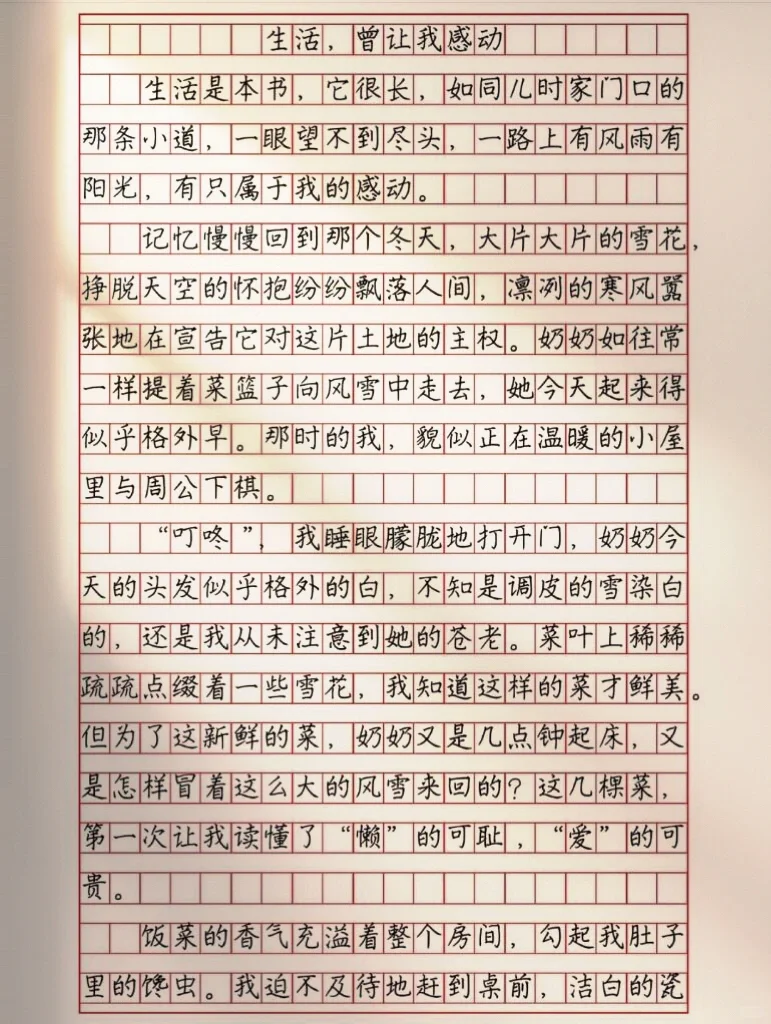 生活，曾让我感动
生活是本书，它很长，如同儿时家门口的
那条小道，一眼望不到尽头，一路上有风雨有
阳光，有只属于我的感动。
记忆慢慢回到那个冬天，大片大片的雪花，
挣脱天空的怀抱纷纷飘落人间，凛冽的寒风嚣
张地在宣告它对这片土地的主权。奶奶如往常
一样提着菜篮子向风雪中走去，她今天起来得
似乎格外早。那时的我，貌似正在温暖的小屋
里与周公下棋。
“叮咚”，我睡眼朦胧地打开门，奶奶今
天的头发似乎格外的白，不知是调皮的雪染白
的，还是我从未注意到她的苍老。菜叶上稀稀
疏疏点缀着一些雪花，我知道这样的菜才鲜美。
但为了这新鲜的菜，奶奶又是几点钟起床，又
是怎样冒着这么大的风雪来回的？这几棵菜，
第一次让我读懂了“懒”的可耻，“爱”的可
贵。
饭菜的香气充溢着整个房间，勾起我肚子
里的馋虫。我迫不及待地赶到桌前，洁白的瓷